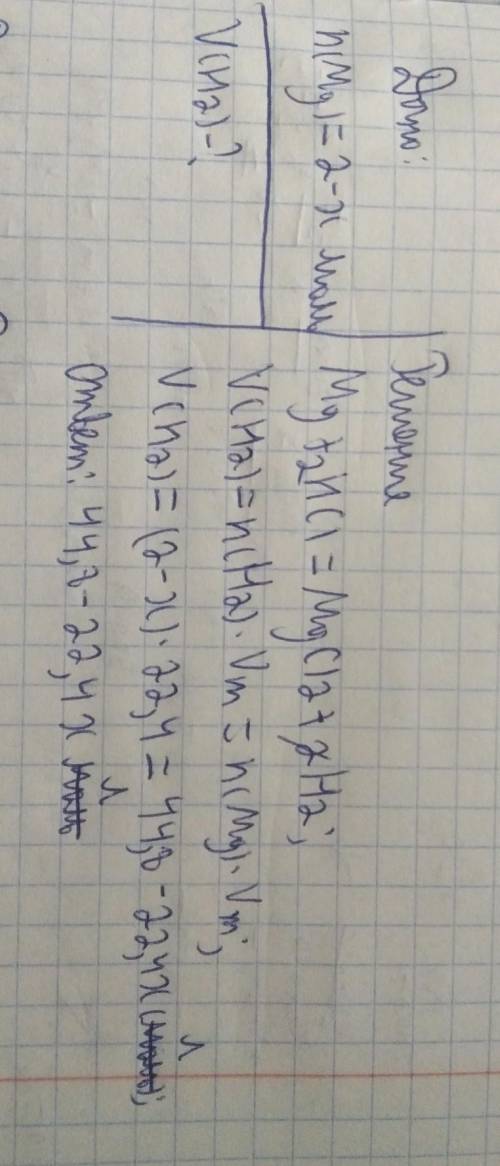 Дано:
n(Mg) = 2-x моль
V(H2)-?
Решение
Mg + 2HCl = MgCl2 + H2;
V(H2) = n(H2) · Vm = n(Mg) · Vm;
V(H2) = (2-x) · 22,4 = 44,8 - 22,4x л;
Ответ: 44,8 - 22,4x л